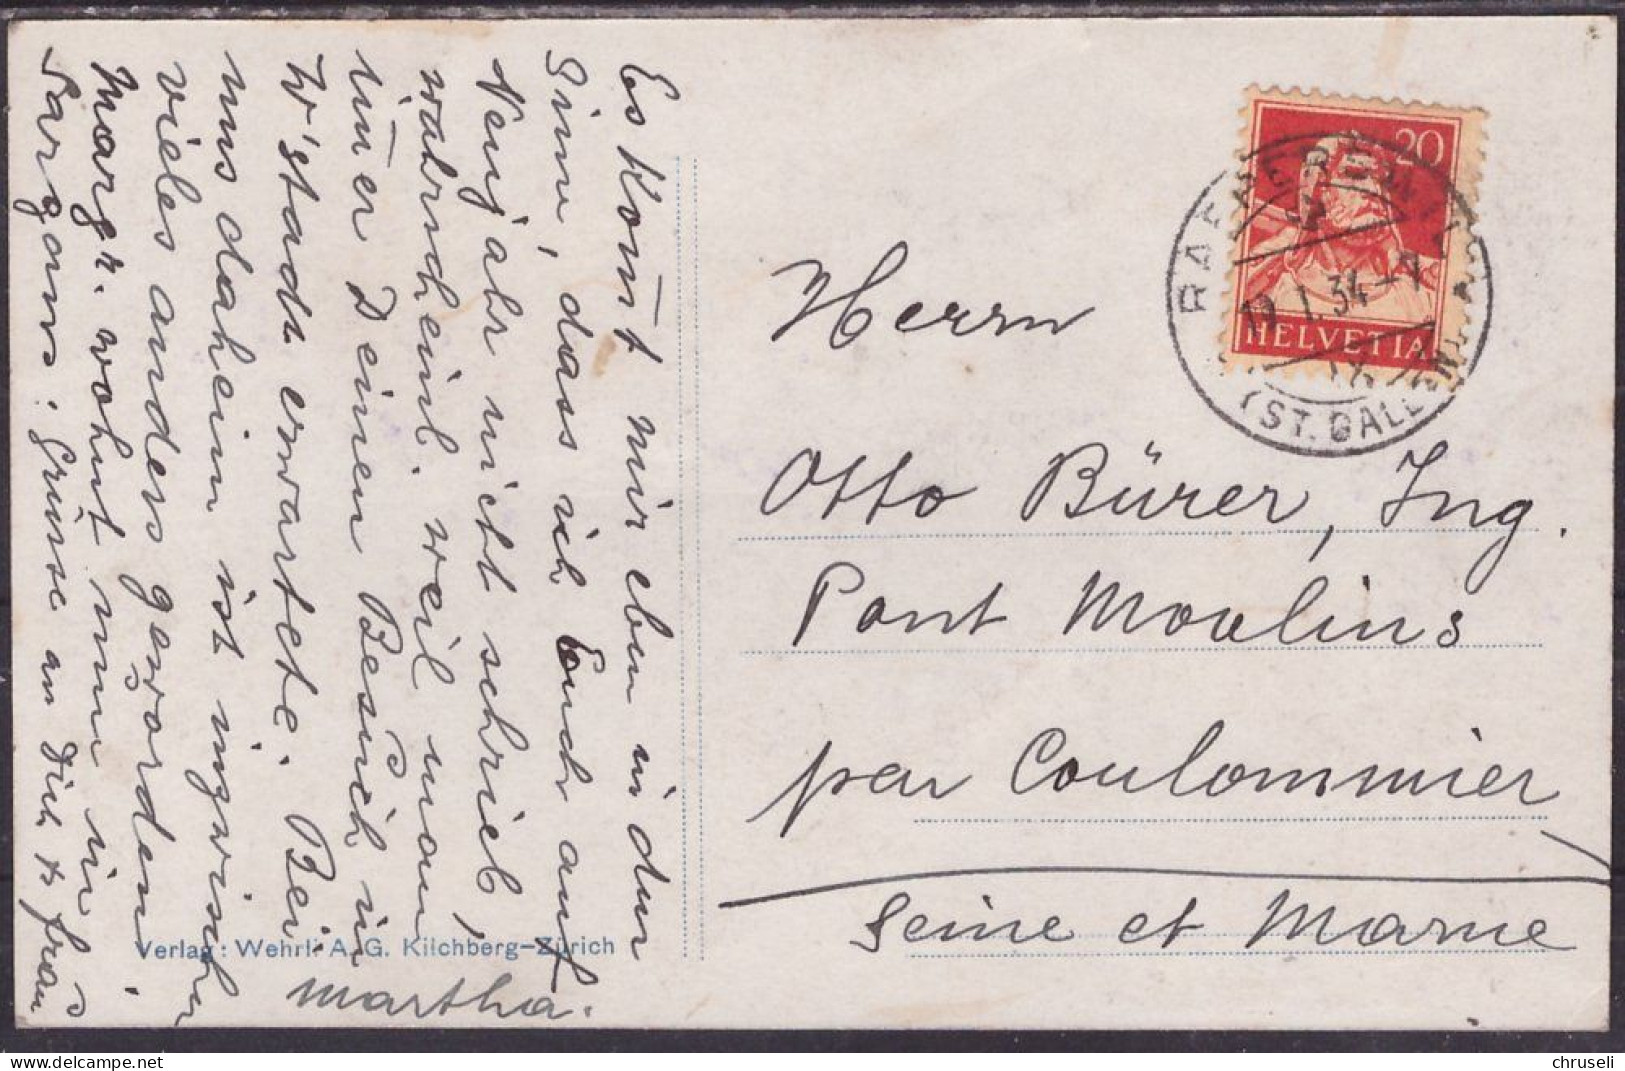 Es kom̄t mir eben in den
Sinn, dass ich Euch auf
Neujahr nicht schrieb,
wahrscheinl. weil man
im̄er Deinen Besuch in
W'stadt erwartete. Bei
uns daheim ist inzwischen
vieles anders geworden.
Margr. wohnt nun in
Sargans. Grüsse an Dich & Frau
Martha.
Verlag: Wehrli A. G. Kilchberg-Zürich
20
HELVETIA
(ST. GALLEN)
Herrn
Otto Bürer, Ing.
Pont Moulins
par Coulommier
Seine et Marne
chruseli